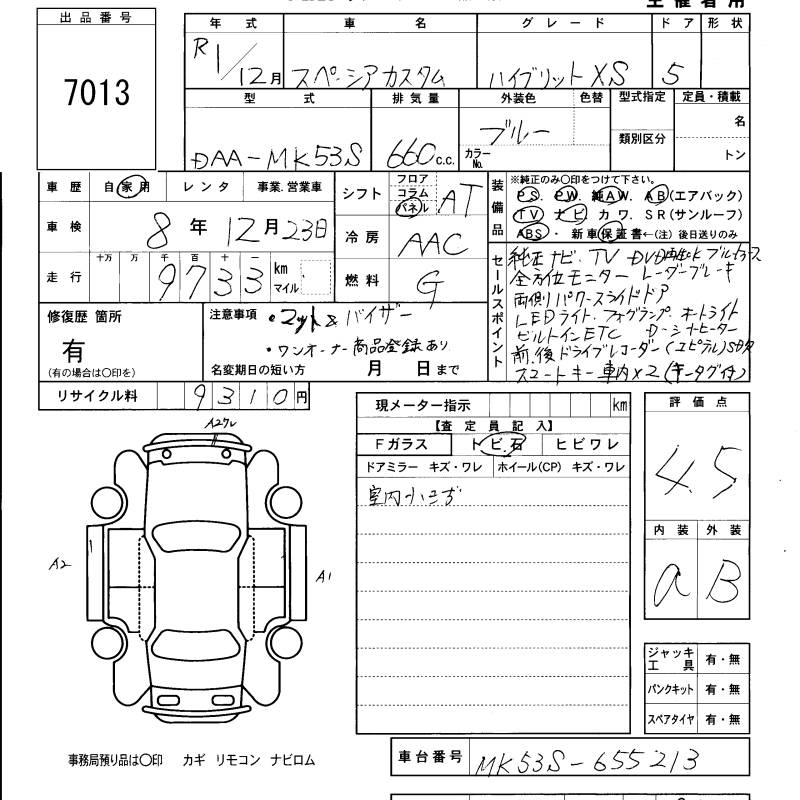 主催者用
出品番号
7013
年式 車名 グレード ドア 形状
R1/12月 スペーシアカスタム ハイブリットXS 5
型式 排気量 外装色 色替 型式指定 定員・積載
類別区分
DAA-MK53S 660c.c. カラーNo. ブルー 名
トン
車歴 自家用 レンタ 事業.営業車
車検 8年12月23日
走行 十万 万 千 百 十 一
9733 km マイル
シフト フロア コラム パネル AT
冷房 AAC
燃料 G
装備品 ※純正のみ〇印をつけて下さい。
PS. PW. 純AW. AB(エアバック)
TV ナビ カワ. SR(サンルーフ)
ABS ・ 新車保証書←(注)後日送りのみ
セールスポイント
純正ナビ・TV DVD再生OK ブルートゥース
全方位モニター レーダーブレーキ
両側パワースライドドア
LEDライト.フォグランプ.オートライト
ビルトインETC D-シートヒーター
前.後ドライブレコーダー(ユピテル)SD欠
スマートキー車内×2(キータグ付)
修復歴 箇所
有
(有の場合は〇印を)
注意事項 ・マット&バイザー
・ワンオーナー商品登録あり
名変期日の短い方 月 日まで
リサイクル料 9310円
現メーター指示 km
【査定員記入】
Fガラス トビ.石 ヒビワレ
ドアミラー キズ・ワレ ホイール(CP) キズ・ワレ
室内小キズ
評価点
4.5
内装 外装
a B
A2
A1
ジャッキ工具 有・無
パンクキット 有・無
スペアタイヤ 有・無
事務局預り品は〇印 カギ リモコン ナビロム
車台番号 MK53S-655213